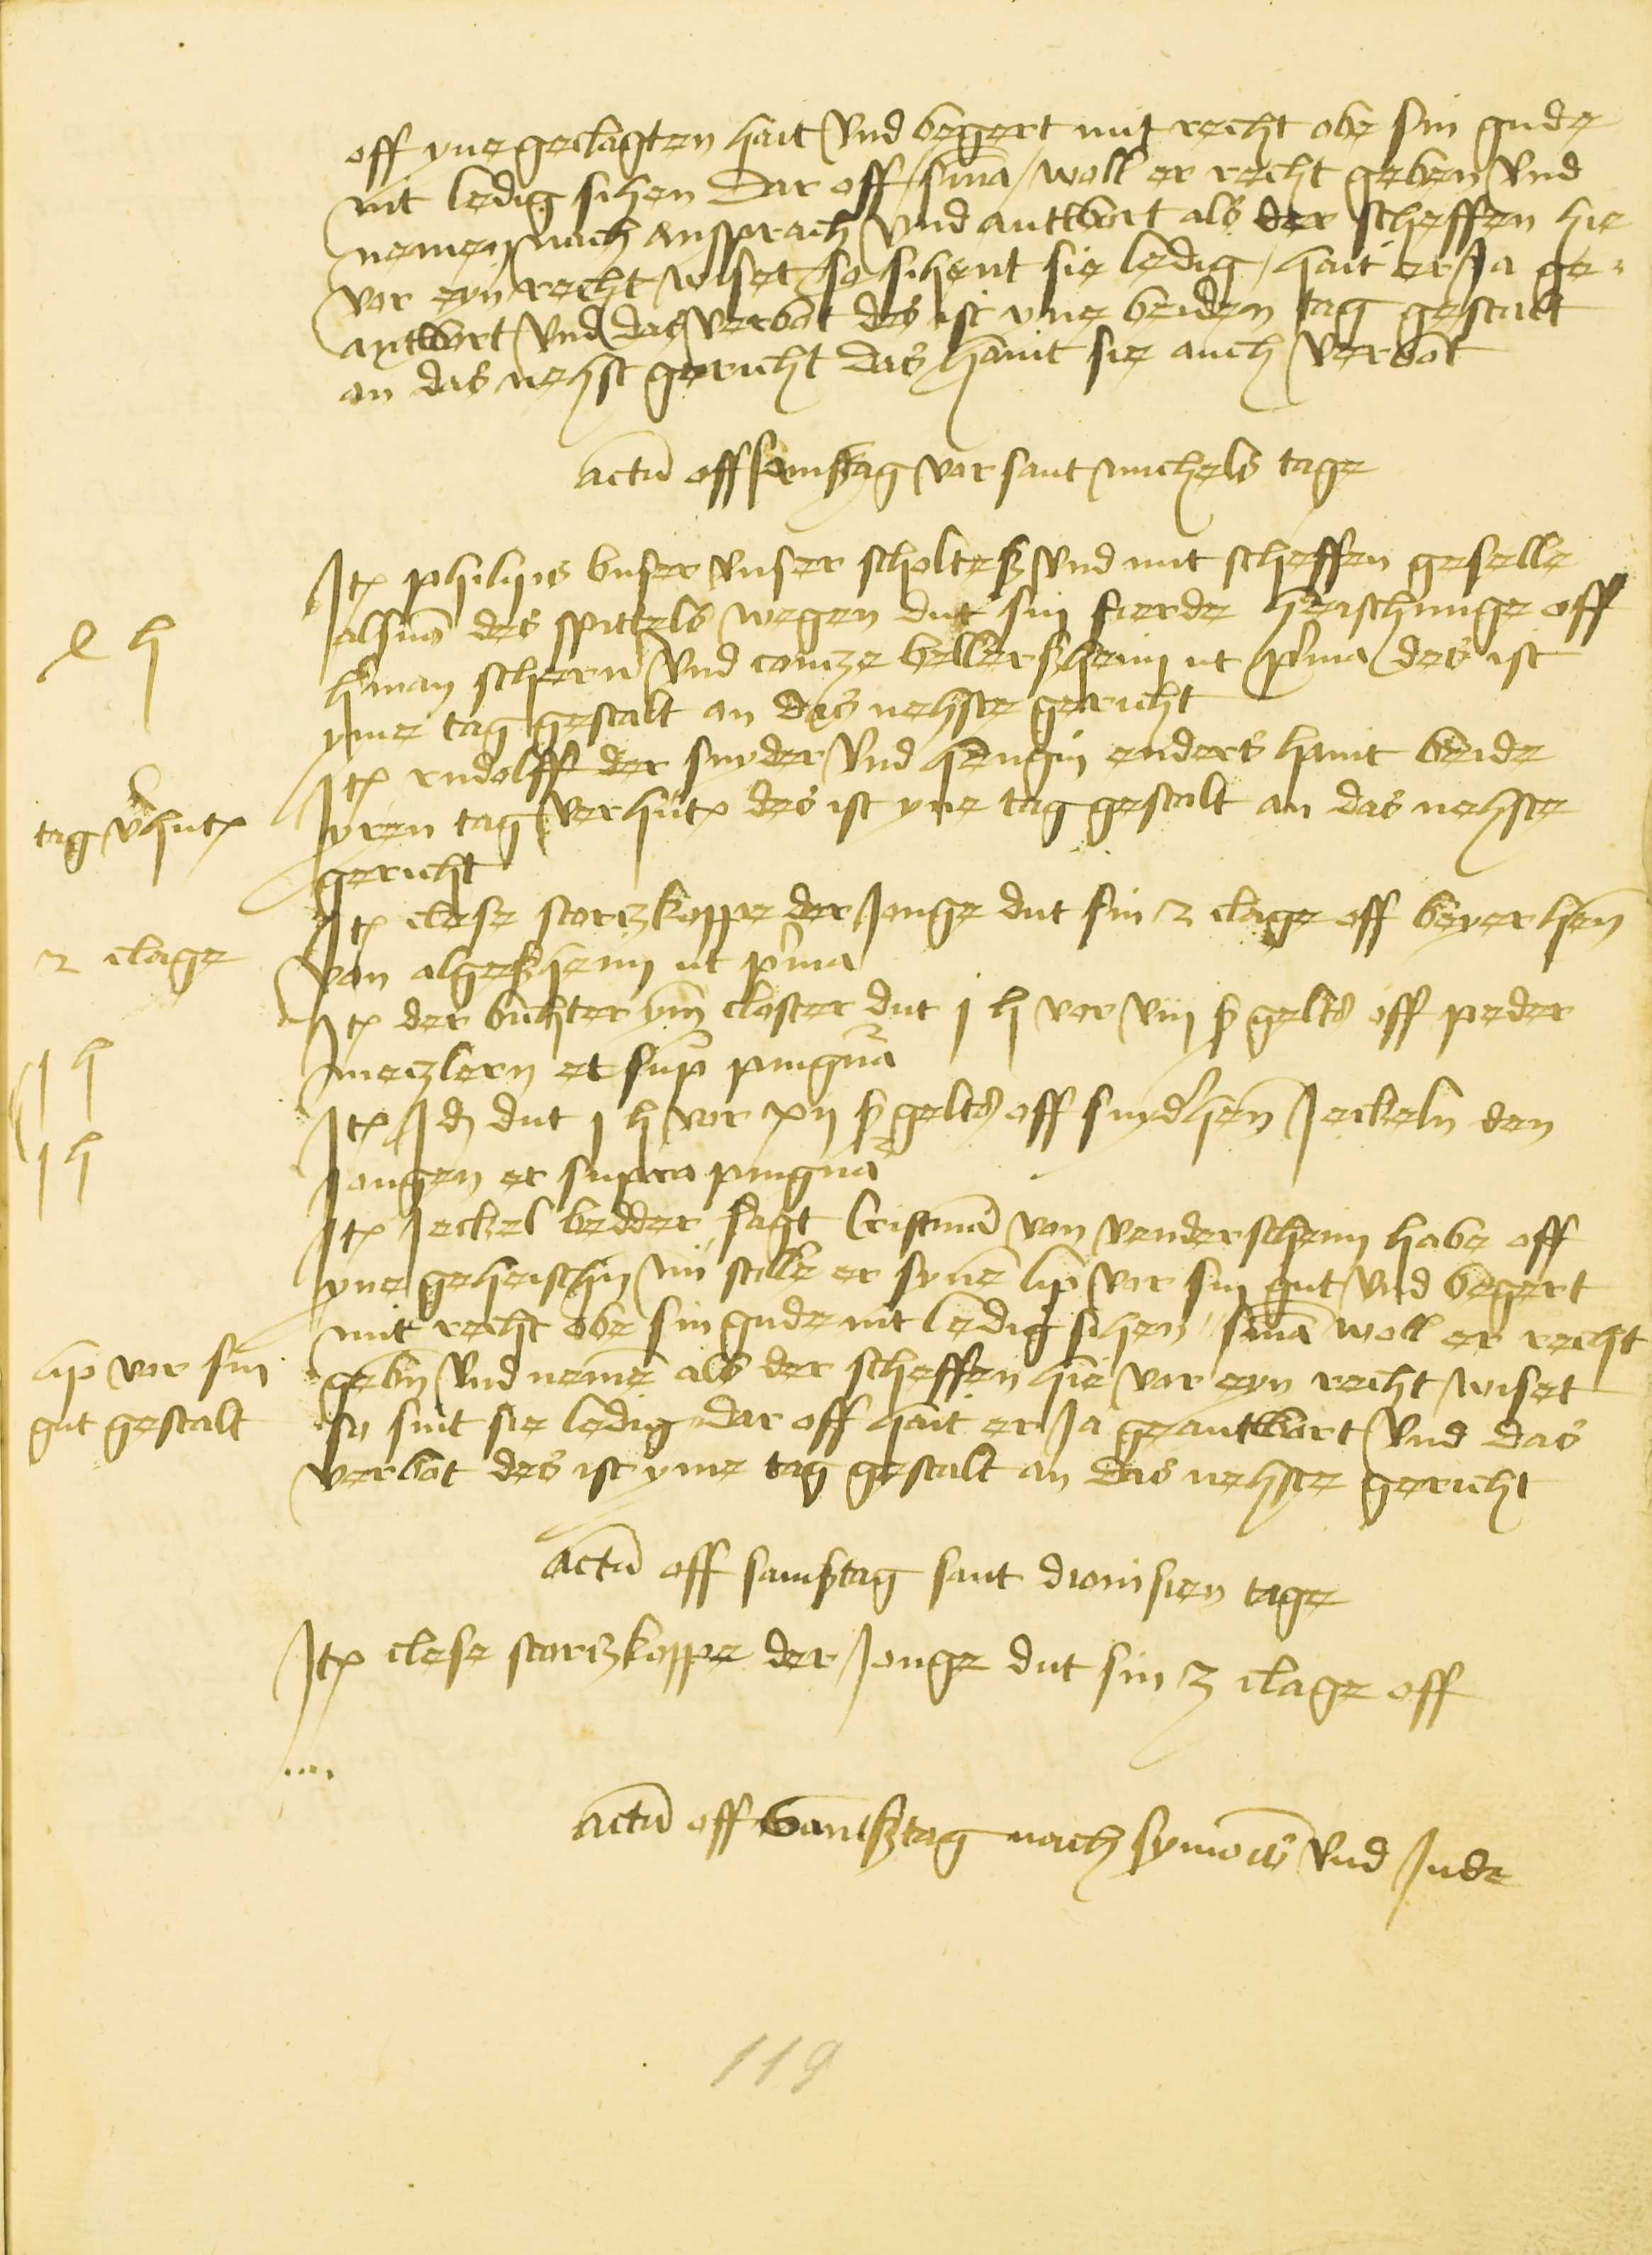 off yne geclagten hait Vnd begert mit recht obe sin gude
nit ledig sihen Dar off sniã woll er recht geben Vnd
nemen nach ansprach Vnd antwort als der scheffen hie
vor eyn recht wiset so sihent sie ledig hait er Ja ge-
antwort Vnd das verbot des ist yne beiden tag gestalt
an das nehst gericht das haint sie auch verbot
Actũ off samßtag vor sant michels tage
Itẽ philips buser vnser scholteß vnd mit scheffen geselle
als von des spittels wegen dut sin fierde heischunge off
hr̃man schern̄ Vnd contze bellerßheim ut p̃ma des ist
yme tag gestalt an das nehste gericht
e h
Itẽ rudolff der snyder Vnd hengin enders haint beide
yren tag verhutẽ des ist yne tag gestalt an das nehste
gericht
tag ṽhutẽ
Itẽ clese storczkoppe der Jonge dut sin 2 clage off beyerhen̄
von algeßheim ut p̃ma
2 clage
Itẽ der bichter ym̄ closter dut j h vor viij ß gelts off peder
metzlern et sup̃ pingnã
j h
Itẽ Id̃ dut j h vor xij ß gelts off snyd̃hen̄ Jeckeln den
Jongen et supra pingnã
j h
Itẽ Jeckel bedder sagt Cristmã von venderscheim habe off
yne geheischñ nũ stille er syne̅ lip vor sin gut Vnd begert
mit recht obe sin gude nit ledig sihen sniã woll er recht
gebñ Vnd neme̅ als der scheffen hie vor eyn recht wiset
so sint sie ledig dar off hait er Ja geantwort Vnd das
verbot des ist yme tag gestalt an das nehste gericht
lip vor sin
gut gestalt
Actũ off samßtag sant dionisien tage
Itẽ clese storczkoppe der Jonge dut sin 3 clage off
....
Actũ off Samßtag nach symõis Vnd Jude
119